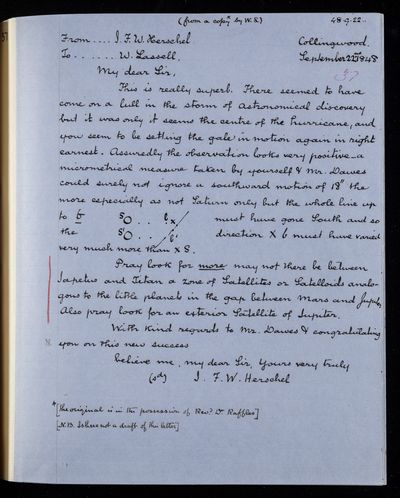 (from a copy by W.S.) 48.9.22..
From.... J. F. W. Herschel Collingwood.
To....... W. Lassell. September 22d 1848
37
My dear Sir,
This is really superb. There seemed to have
come on a lull in the storm of astronomical discovery
but it was only it seems the centre of the hurricane, and
you seem to be setting the gale in motion again in right
earnest. Assuredly the observation looks very positive _ a
micrometrical measure taken by yourself & Mr. Dawes
could surely not ignore a southward motion of 18" the
more especially as not Saturn only but the whole line up
to must have gone South and so
the direction X 6 must have varied
very much more than X S.
Pray look for more may not there be between
Iapetus and Titan a zone of Satellites or Satelloids analo-
gous to the little planets in the gap between Mars and Jupiter
Also pray look for an exterior Satellite of Jupiter.
With kind regards to Mr. Dawes & congratulating
you on this new success
believe me, my dear Sir, yours very truly
(sd) J. F. W. Herschel
[the original is in the possession of Revd. Dr Raffles]
[N.B. Is there not a draft of this letter]